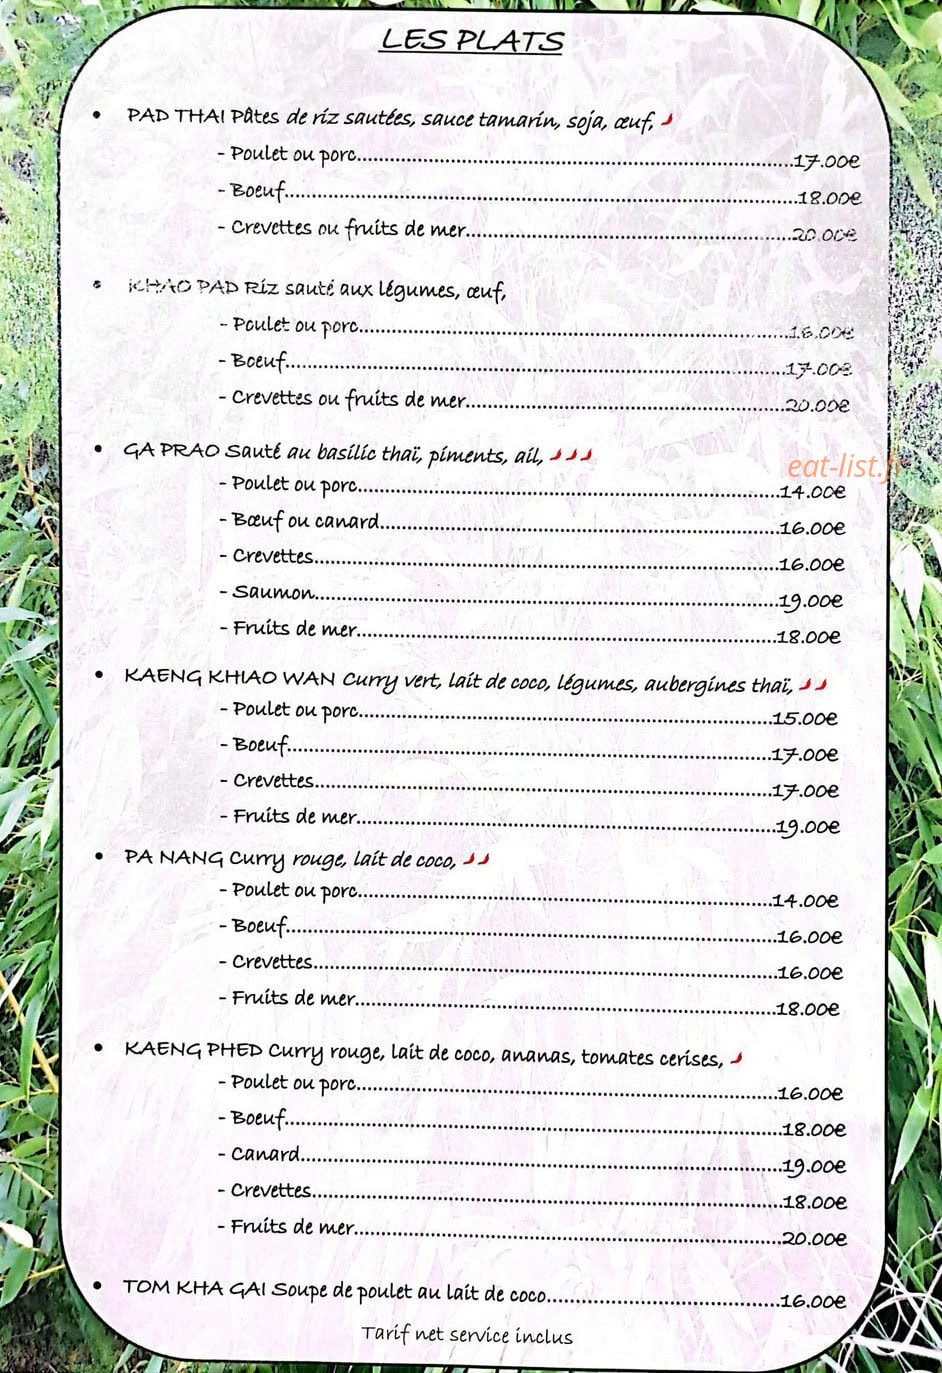 LES PLATS
• PAD THAI Pâtes de riz sautées, sauce tamarin, soja, œuf,
- Poulet ou porc.....17.00€
- Boeuf.....18.00€
- Crevettes ou fruits de mer.....20.00€
• KHAO PAD Riz sauté aux légumes, œuf,
- Poulet ou porc.....16.00€
- Boeuf.....17.00€
- Crevettes ou fruits de mer.....20.00€
• GA PRAO Sauté au basilic thaï, piments, ail,
eat-list.fr
- Poulet ou porc.....14.00€
- Bœuf ou canard.....16.00€
- Crevettes.....16.00€
- Saumon.....19.00€
- Fruits de mer.....18.00€
• KAENG KHIAO WAN Curry vert, lait de coco, légumes, aubergines thaï,
- Poulet ou porc.....15.00€
- Boeuf.....17.00€
- Crevettes.....17.00€
- Fruits de mer.....19.00€
• PA NANG Curry rouge, lait de coco,
- Poulet ou porc.....14.00€
- Boeuf.....16.00€
- Crevettes.....16.00€
- Fruits de mer.....18.00€
• KAENG PHED Curry rouge, lait de coco, ananas, tomates cerises,
- Poulet ou porc.....16.00€
- Boeuf.....18.00€
- Canard.....19.00€
- Crevettes.....18.00€
- Fruits de mer.....20.00€
• TOM KHA GAI Soupe de poulet au lait de coco.....16.00€
Tarif net service inclus